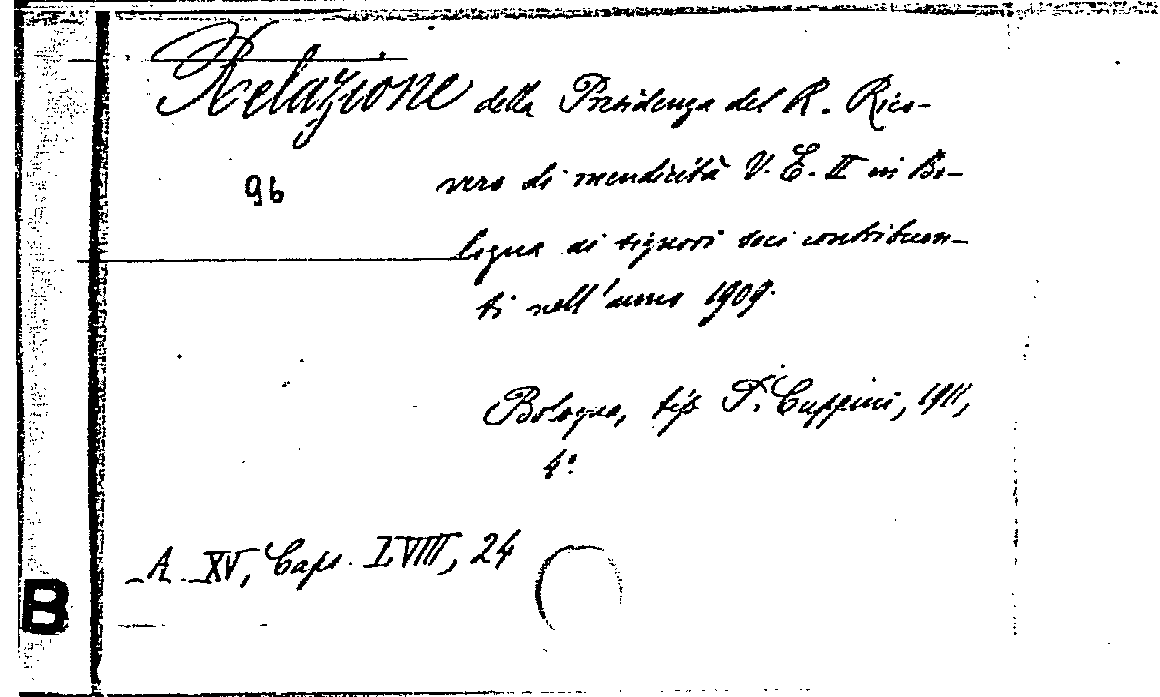 Relazione della Presidenza del R. Rico-
96
vero di mendicità V. E. II in Bo-
logna ai signori soci contribuen-
ti nell'anno 1909.
Bologna, tip. F. Cuppini, 1911,
4°
A. XV, Caps. LVIII, 24
B